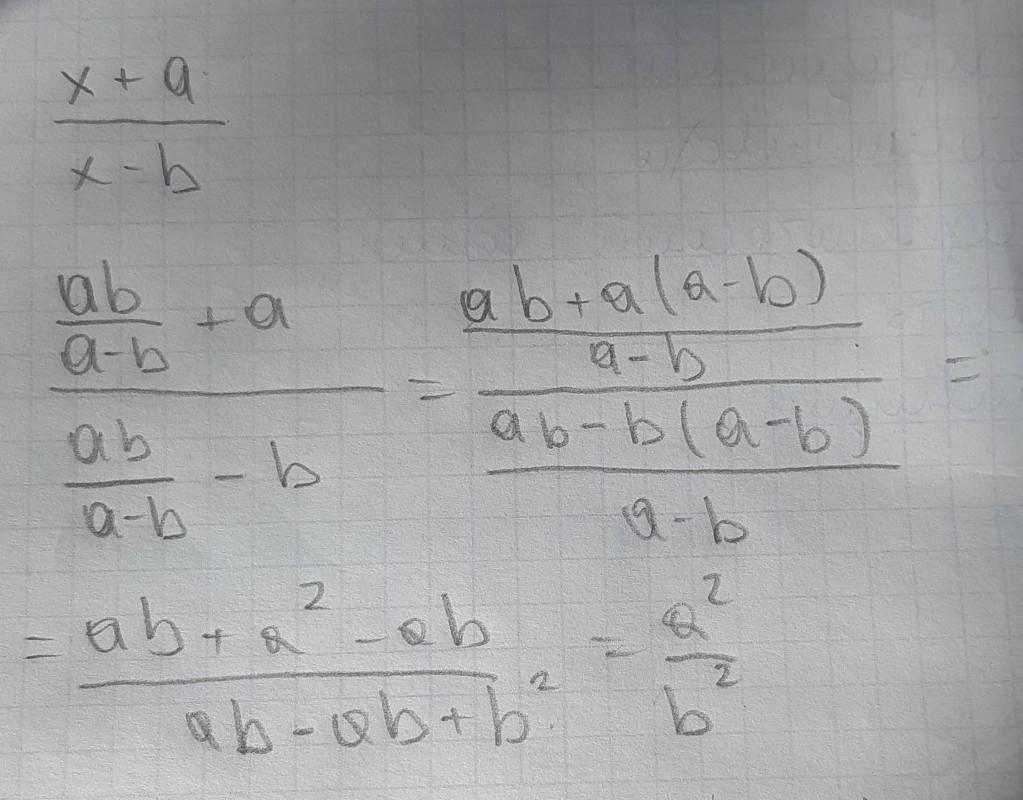 x + a
x - b
ab/(a-b) + a = ab + a(a-b)/(a-b) =
ab/(a-b) - b ab - b(a-b)/(a-b)
= ab + a² - ab = a²
ab - ab + b² b²